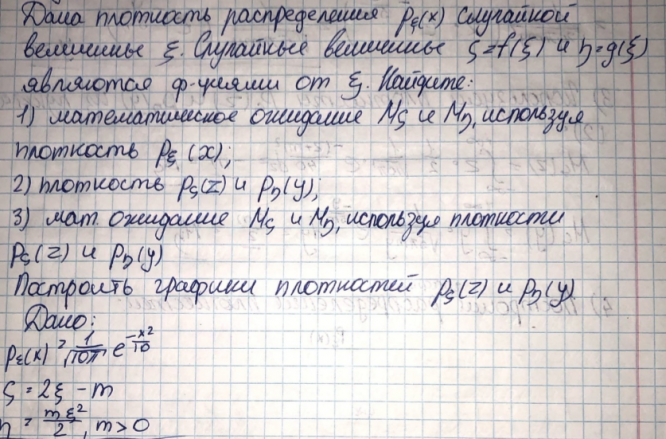 Дана плотность распределения p_ξ(x) случайной
величины ξ. Случайные величины ς=f(ξ) и η=g(ξ)
являются ф-циями от ξ. Найдите:
1) математическое ожидание Mς и Mη, используя
плотность p_ξ(x);
2) плотность p_ς(z) и p_η(y);
3) мат. ожидание Mς и Mη, используя плотности
p_ς(z) и p_η(y)
Построить графики плотностей p_ς(z) и p_η(y)
Дано:
p_ξ(x) = 1/√10π e^(-x²/10)
ς = 2ξ - m
η = mξ²/2, m>0